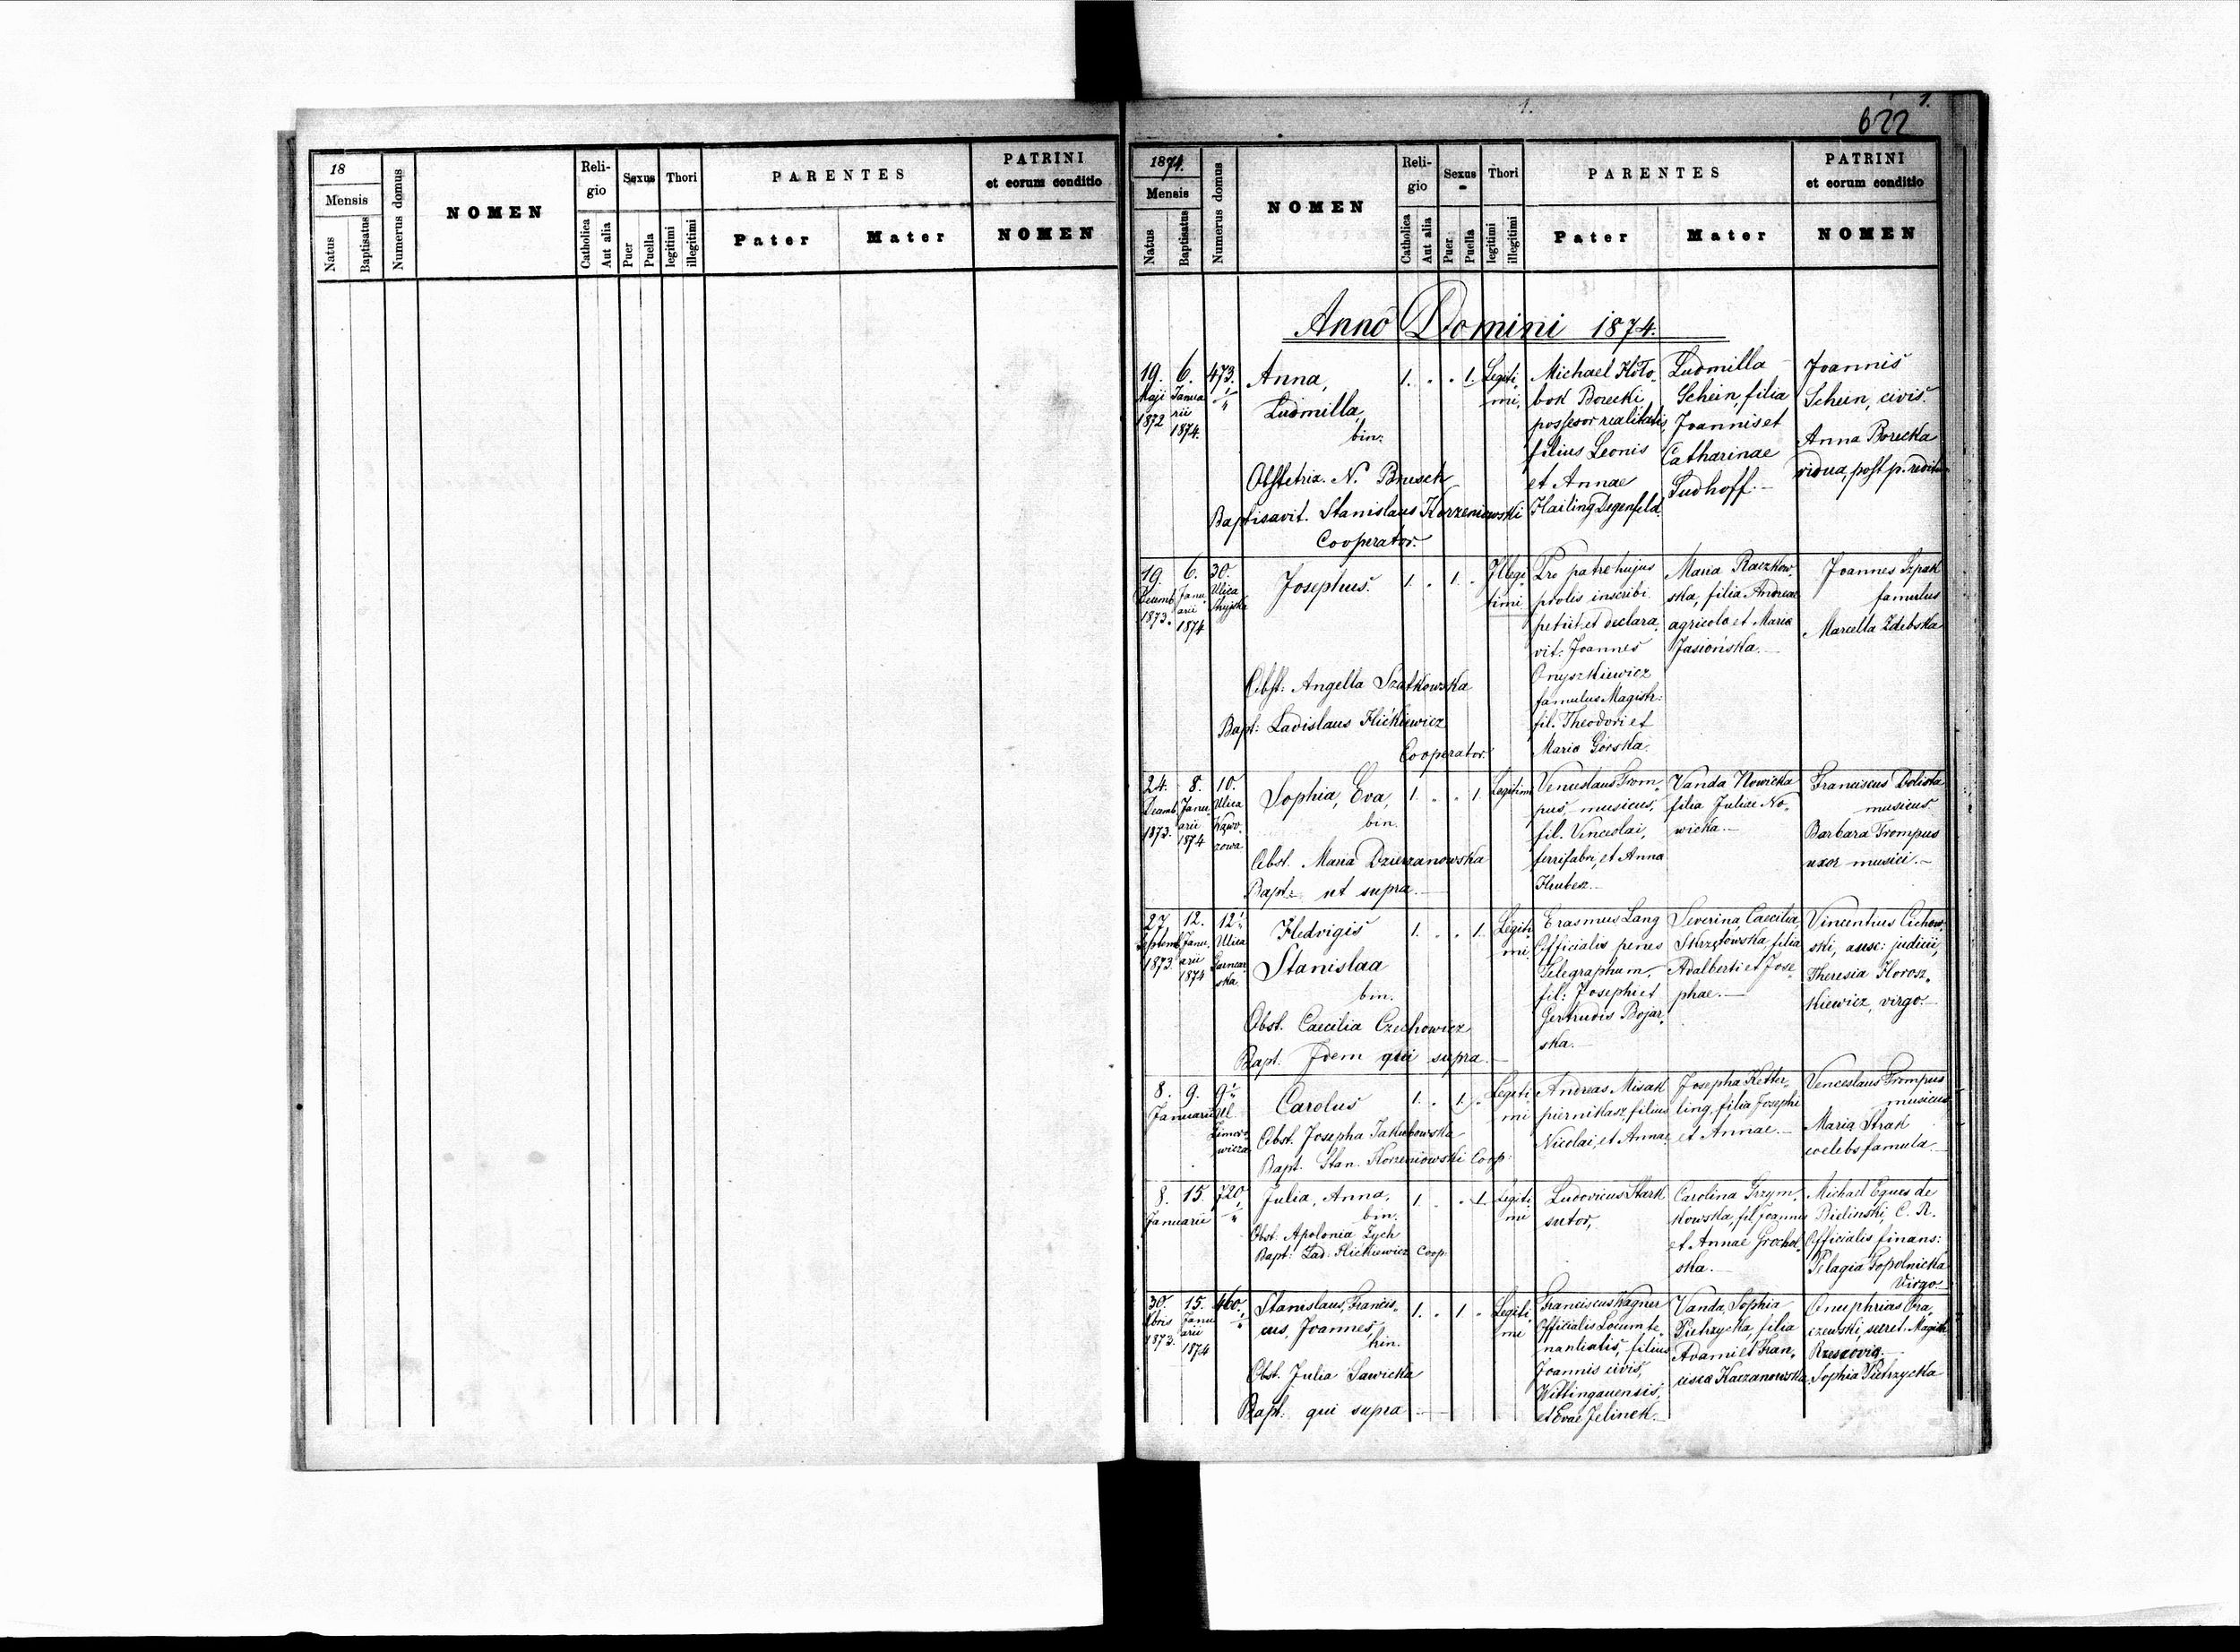 18
Mensis
Natus
Baptisatus
Numerus domus
NOMEN
Reli-
gio
Catholica
Aut alia
Sexus
Puer
Puella
Thori
legitimi
illegitimi
PARENTES
Pater
Mater
PATRINI
et eorum conditio
NOMEN
1.
1.
622
1874.
Mensis
Natus
Baptisatus
Numerus domus
NOMEN
Reli-
gio
Catholica
Aut alia
Sexus
Puer
Puella
Thori
legitimi
illegitimi
PARENTES
Pater
Mater
PATRINI
et eorum conditio
NOMEN
Anno Domini 1874.
19.
Maji
1872
6.
Janua
rii
1874.
473.
Anna,
Ludmilla,
bin.
Obstetrix. N. Brusch
Baptisavit. Stanislaus Korzeniowski
Cooperator.
1. . . 1.
Legiti
mi.
Michael
bok Borecki
possesor realitatis,
filius Leonis
et Annae
Hailing Degenfeld.
Ludmilla
Schein, filia
Joannis et
Catharinae
Sudhoff.
Joannis
Schein, civis.
Anna Borecka
vidua, post p.
19.
Decemb
1873.
6.
Janu
arii
1874
30.
Ulica
Stryjska
Josephus.
Obst: Angella Szatkowska
Bapt: Ladislaus Hićkiewicz
Cooperator.
1. . 1. .
Illegi
timi
Pro patre hujus
prolis inscribi
petiit et declara,
vit: Joannes
Onyszkiewicz
famulus Magistr:
fil. Theodori et
Maria Górska.
Maria Raczkow,
ska, filia Andreae
agricola et Maria
Jasiońska.
Joannes Szpak
famulus
Marcella Zdebska
24.
Decemb
1873.
8.
Janu
arii
1874
10.
Ulica
zowa
Sophia, Eva,
bin.
Obst. Maria Dzierzanowska
Bapt: ut supra.
1. . . 1.
Legitimi
Venceslaus Trom,
pus, musicus,
fil. Venceslai,
ferrifabri, et Anna
Vanda Nowicka
filia Juliae No,
wicka.
Franciscus
musicus.
Barbara Trompus
uxor musici.
27
Septemb
1873.
12.
Janu.
arii
1874
12
Ulica
Garncar
ska
Hedvigis
Stanislaa
bin.
Obst. Caecilia Czechowicz
Bapt. Idem qui supra.
1. . . 1.
Legiti
mi.
Erasmus Lang
Officialis penes
Telegraphum,
fil: Josephi et
Gertrudis Bojar,
ska.
Severina, Caecilia,
Skrzętowska, filia
Adalberti et Jose,
phae.
Vincentius Cichow,
ski, ausc: judicii,
Theresia Horosz,
kiewicz, virgo.
8. 9.
Januarii
9
Ul.
Zimoro
wicza
Carolus
Obst. Josepha Jakubowska
Bapt. Stan. Korzeniowski Coop:
1. . 1. .
Legiti
mi
Andreas Misak
piernikarz, filius
Nicolai, et Annae
Josepha Ketter,
ling, filia Josephi
et Annae.
Venceslaus Trompus
musicus
Maria Strak
coelebs famula
8. 15.
Januarii
720
Julia, Anna,
bin.
Obst: Apolonia Zych
Bapt: Lad. Hićkiewicz Coop.
1. . . 1.
Legiti
mi
Ludovicus Stark
sutor,
Carolina Grzym,
kowska, fil Joannis
et Annae Grochol,
ska.
Michael Eques de
Bielinski, C. R.
Officialis finans:
Pelagia Topolnicka
Virgo.
30.
Xbris
1873.
15.
Janu
arii
1874
460.
Stanislaus, Francis,
cus, Joannes,
bin.
Obst. Julia Sawicka
Bapt: qui supra
1. . 1 .
Legiti,
mi
Franciscus Wagner
Officialis Locumte,
nantiatis, filius
Joannis civis,
Wittingauensis,
et Evae Jelinek.
Vanda, Sophia
Pietrzycka, filia
Adami et Fran,
cisca Kaczanowska
Onuphrius Bra,
czewski, secret. Magistr
Sophia Pietrzycka